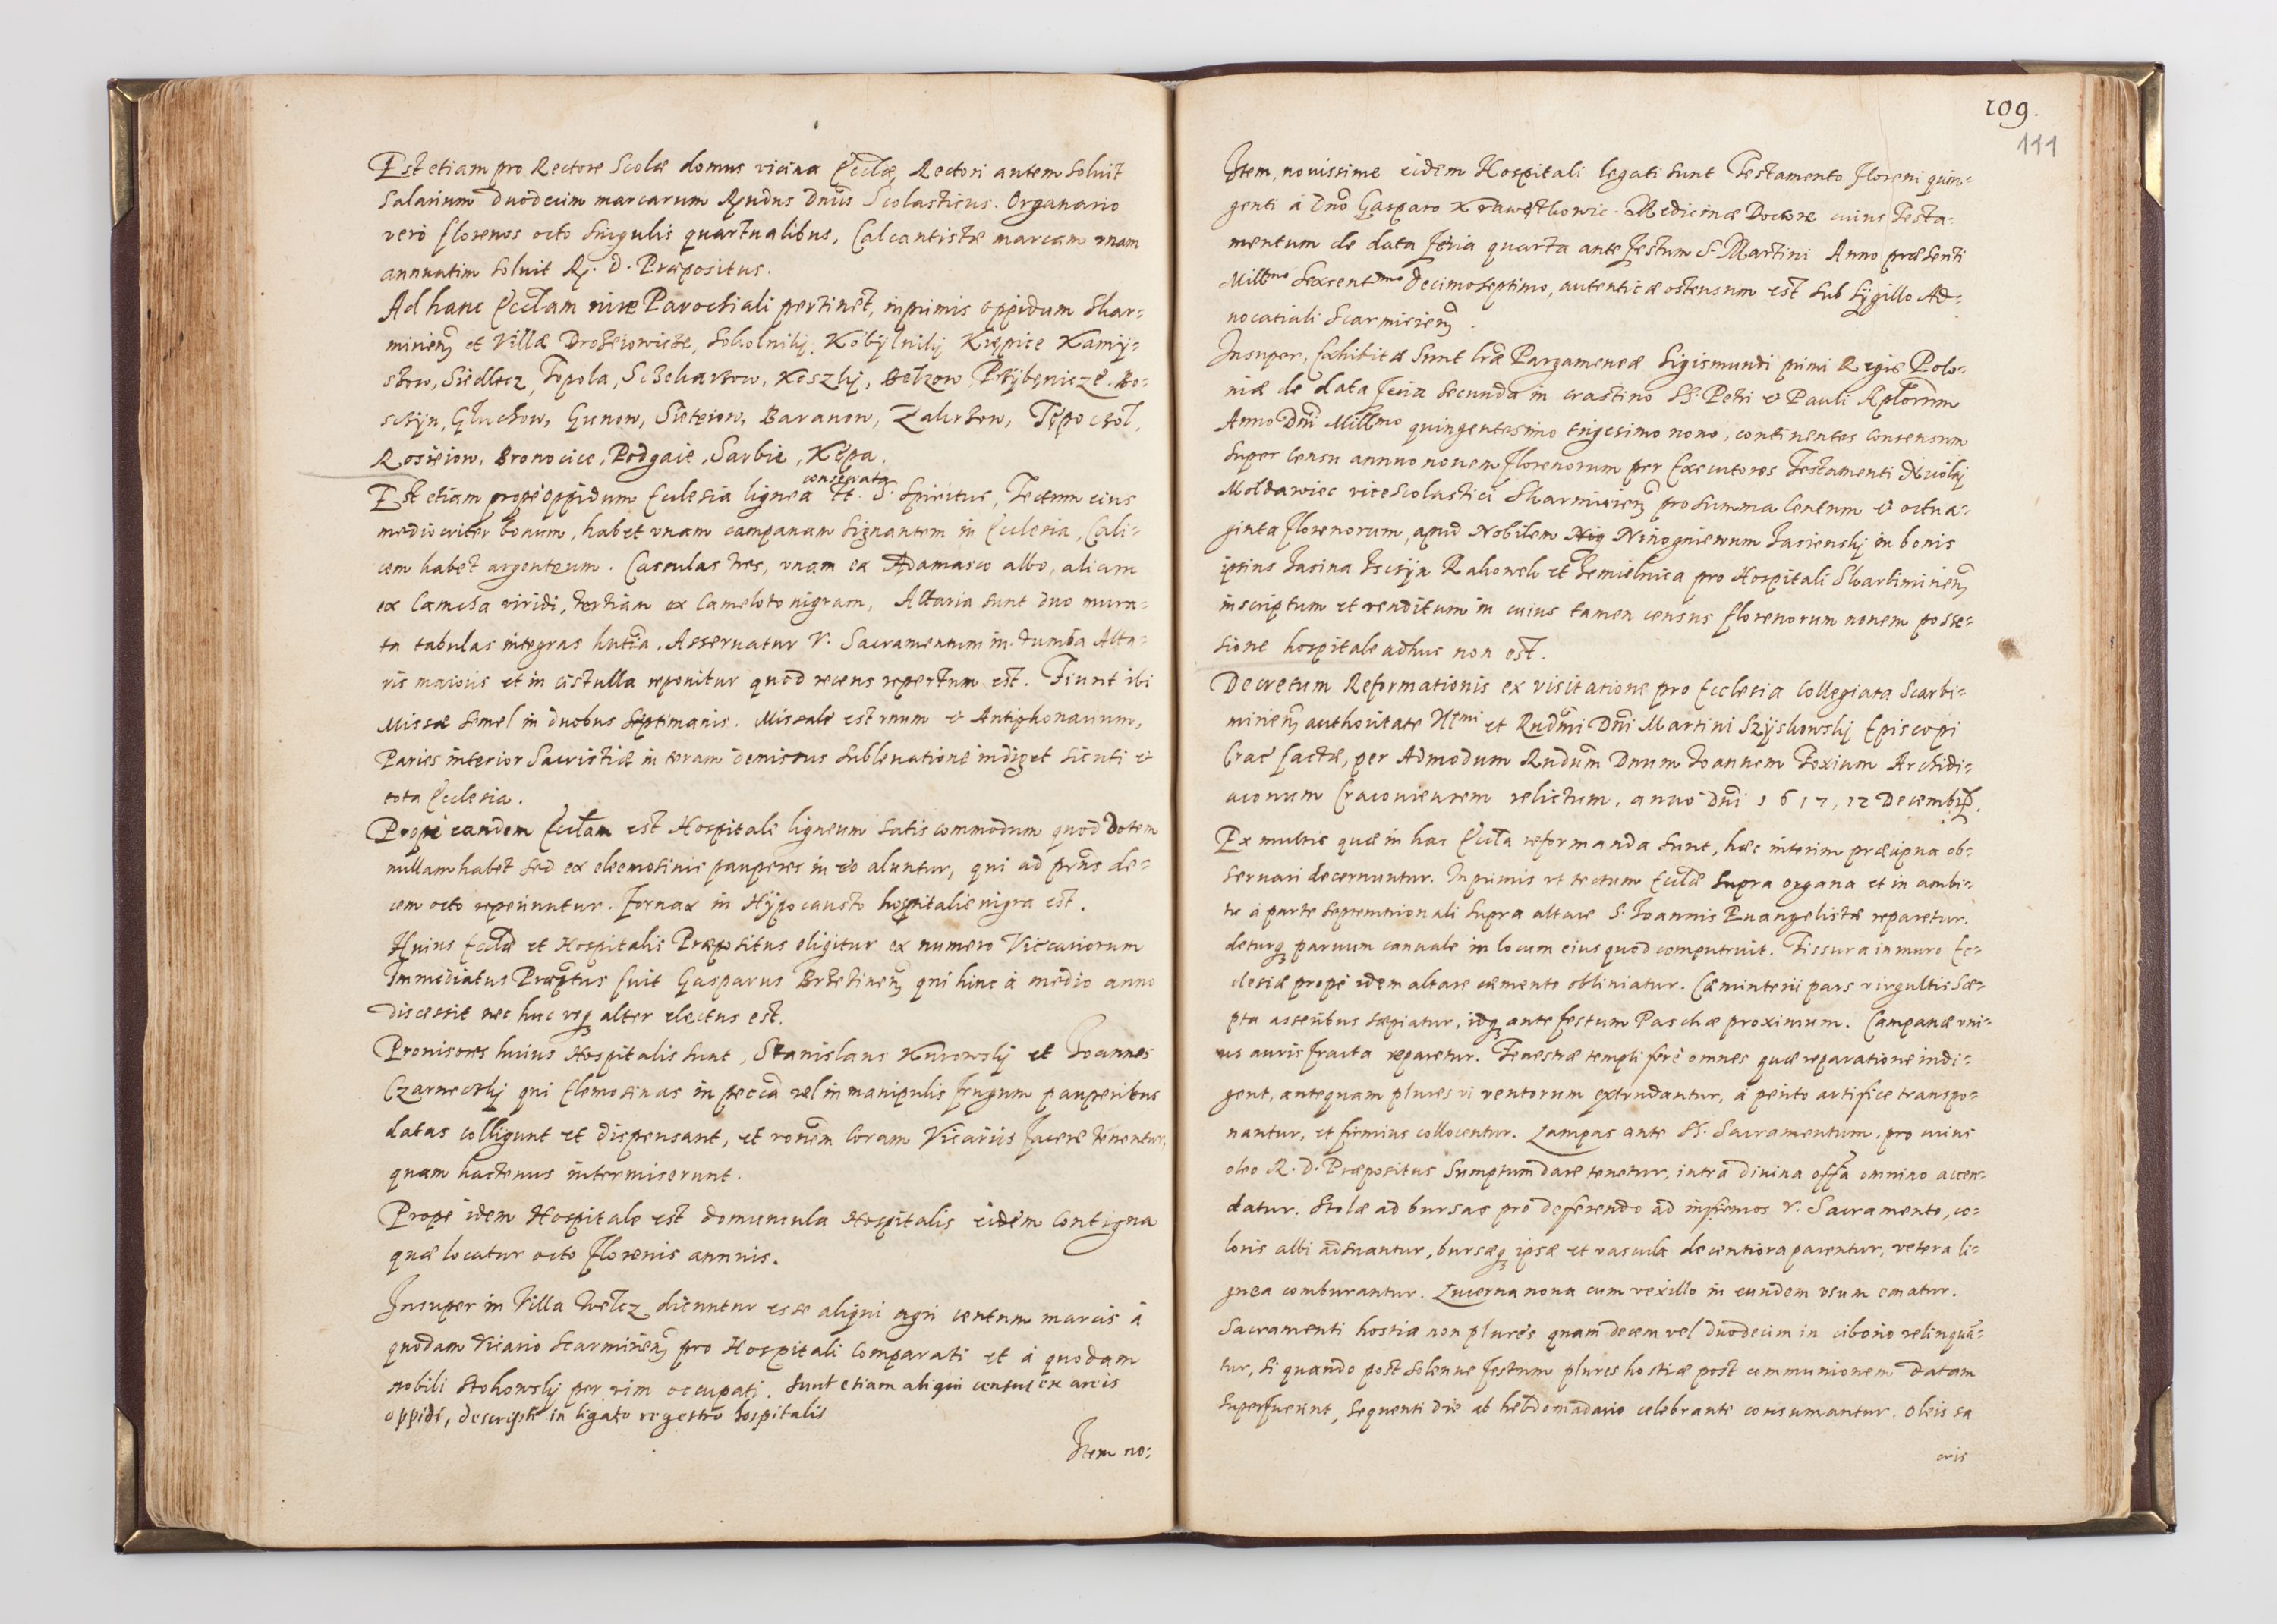 Est etiam pro Rectore Scolæ domus vicina Eccliæ, Rectori autem soluit
salarium duodecim marcarum Rndus Dnus Scolasticus. Organario
verò florenos octo singulis quartualibus, Calcantistæ marcam vnam
annuatim soluit R. D. Præpositus.
Ad hanc Eccliam iure Parochiali pertinet, inprimis oppidum Skar=
mirien et Villæ Drożeiowicze, Sokolniky, Kobylniky Krępice Kamy=
show, Siedlecz, Topola, Szczekarzow, Keszky, Bełzow, Przybęnicze, Bo=
schyn, Gluchow, Gunow, Sieteiow, Baranow, Zakrzow, Tępochol,
Rosieiow, Bronocice, Podgaie, Sarbie, Kępa.
consecrata
Est etiam propè oppidum Ecclesia lignea tt. S. Spiritus, Tectum eius
mediocriter bonum, habet vnam campanam signantem in Ecclesia, Cali=
cem habet argenteum. Casulas tres, vnam ex Adamasco albo, aliam
ex Camcha viridi, tertiam ex Cameloto nigram, Altaria sunt duo mura=
ta tabulas integras Asseruatur V. Sacramentum in tumba Alta=
ris maioris et in cistulla reponitur quod recens repertum est. Fiunt ibi
Missæ semel in duobus septimanis. Missale est vnum et Antiphonarium,
Paries interior Sacristiæ in teram demissus subleuatione indiget sicuti et
tota Ecclesia.
Propè eandem Eccliam est Hospitale ligneum satis commodum quod dotem
nullam habet sed ex eleemosinis pauperes in eo aluntur, qui ad prns de=
cem octo reperiuntur. Fornax in Hypocausto hospitalis nigra est.
Huius Eccliæ et Hospitalis Præpositus eligitur ex numero Viccariorum
Immediatus Præptus fuit Gasparus Brzezinen qui hinc à medio anno
discessit nec huc vsq alter electus est.
Prouisores huius Hospitalis sunt, Stanislaus Kurowsky et Joannes
Czarnecky qui Elemosinas in peccā vel in manipulis frugum pauperibus
datas colligunt et dispensant, et ronem coram Vicariis facere tenentur,
quam hactenus intermiserunt.
Propè idem Hospitale est domuncula Hospitalis eidem contigua
quæ locatur octo florenis annuis.
Insuper in Villa Wełcz dicuntur esse aliqui agri centum marcis à
quodam Vicario Scarmirien pro Hospitali comparati et à quodam
nobili Stokowsky per vim occupati. Sunt etiam aliqui census ex areis
oppidi, descripti in ligato regestro hospitalis
Item no:
109.
111
Item, nouissime eidem Hospitali legati sunt Testamento floreni quin=
genti à Dno Gasparo Krawętkowic. Medicinæ Doctore cuius Testa=
mentum de data feria quarta ante festum S. Martini Anno præsenti
Millmo Sexcentmo Decimoseptimo, autenticæ ostensum est sub sygillo Ad=
uocatiali Scarmirien.
Insuper, Exhibitæ sunt lræ Pargameneæ Sigismundi primi Regis Polo=
niæ de data feria secunda in crastino SS. Petri et Pauli Aplorum
Anno Dni Millmo quingentesimo trigesimo nono, continentes consensum
super censu annuo nouem florenorum per Executores Testamenti
Moldawiec vicescolastici Skarmirien pro summa Centum et octua=
ginta florenorum, apud Nobilem Nig Nirogniewum Jasiensky in bonis
ipsius Jasina Rakowek et Zemielnica pro Hospitali Skarbimirien
inscriptum et venditum in cuius tamen census florenorum nouem posse=
sione hospitale adhuc non est.
Decretum Reformationis ex visitatione pro Ecclesia Collegiata Scarbi=
mirien authoritate Illmi et Rndmi Dni Martini Szyskowsky Episcopi
Crac factæ, per Admodum Rndum Dnum Joannem Foxium Archidi=
aconum Cracouiensem relictum, anno Dni 1617, 12 Decembr.
Ex multis quæ in hac Ecclia reformanda sunt, hæc interim præcipua ob=
seruari decernuntur. Inprimis vt tectum Eccliæ supra organa et in ambi=
tu à parte septemtrionali supra altare S. Joannis Euangelistæ reparetur.
deturq paruum canale in locum eius quod computruit. Fissura in muro Ec=
clesiæ propè idem altare cæmento obliniatur. Cæminterii pars virgultis sæ=
pta asseribus sæpiatur, idq ante festum Paschæ proximum. Campanæ vni=
us auris fracta reparetur. Fenestræ templi ferè omnes quæ reparatione indi=
gent, antequam plures vi ventorum extrudantur, à perito artifice transpo=
nantur, et firmius collocentur. Lampas ante SS. Sacramentum, pro cuius
oleo R. D. Præpositus sumptum dare tenetur, intra diuina offa omnino accen=
datur. Stolæ ad bursas pro deferendo ad infirmos V. Sacramento, co=
loris albi adsuantur, bursæq ipsæ et vascula decentiora parentur, vetera li=
gnea comburantur. Lucerna noua cum vexillo in eundem vsum ematur.
Sacramenti hostiæ non plures quam decem vel duodecim in ciborio relinquā=
tur, si quando post solenne festum plures hostiæ post communionem datam
superfuerint, sequenti die ab hebdomadario celebrante consumantur. Oleis sa
cris